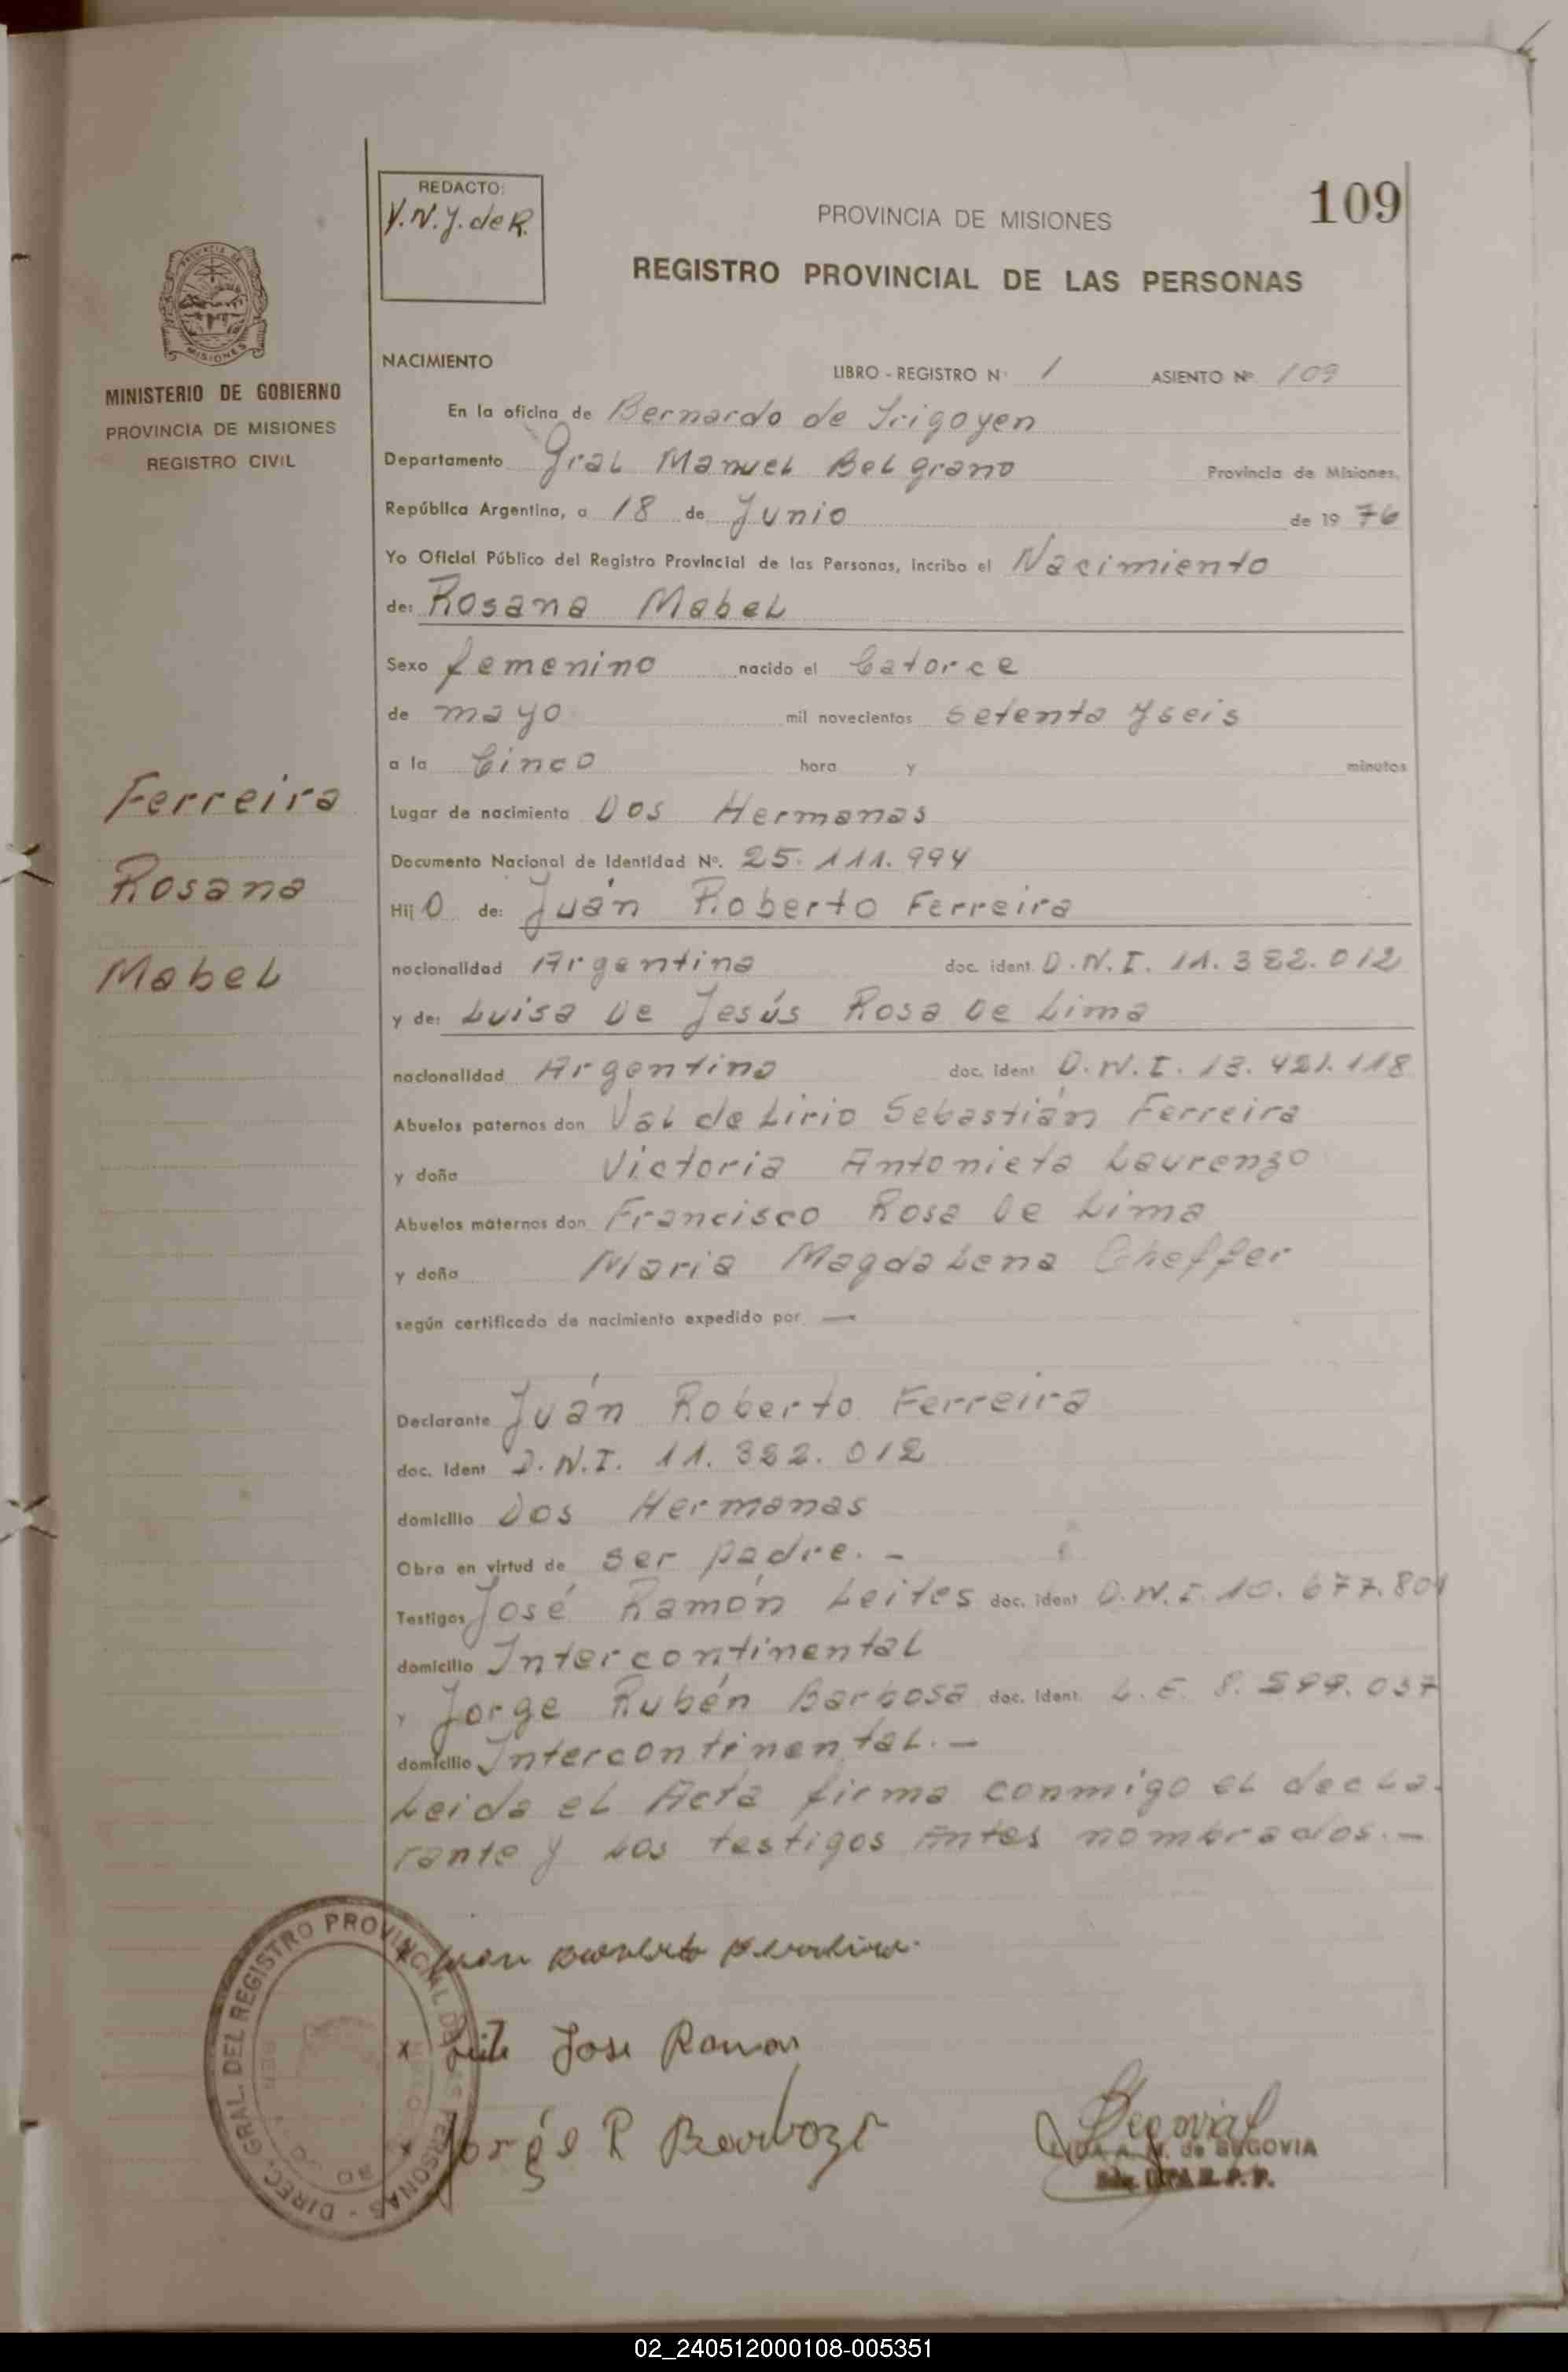 REDACTO:
V.N.J. de R.
PROVINCIA DE MISIONES
109
REGISTRO PROVINCIAL DE LAS PERSONAS
PROVINCIA DE MISIONES
MINISTERIO DE GOBIERNO
PROVINCIA DE MISIONES
REGISTRO CIVIL
NACIMIENTO
LIBRO - REGISTRO N° 1 ASIENTO Nº 109
En la oficina de Bernardo de Irigoyen
Departamento Gral Manuel Belgrano Provincia de Misiones,
República Argentina, a 18 de Junio de 19 76
Yo Oficial Público del Registro Provincial de las Personas, incribo el Nacimiento
de: Rosana Mabel
Sexo femenino nacido el Catorce
de mayo mil novecientos setenta y seis
a la Cinco hora y minutos
Ferreira
Rosana
Mabel
Lugar de nacimiento Dos Hermanas
Documento Nacional de Identidad Nº. 25.111.994
Hij o de: Juán Roberto Ferreira
nacionalidad Argentina doc. ident. D.N.I. 11.322.012
y de: Luisa De Jesús Rosa De Lima
nacionalidad Argentina doc. ident. D.N.I. 13.421.118
Abuelos paternos don Val de Lirio Sebastián Ferreira
y doña Victoria Antonieta Laurenzo
Abuelos maternos don Francisco Rosa De Lima
y doña Maria Magdalena Cheffer
según certificado de nacimiento expedido por —
Declarante Juán Roberto Ferreira
doc. Ident D.N.I. 11.322.012
domicilio Dos Hermanas
Obra en virtud de ser padre. -
Testigos José Ramón Leites doc. ident D.N.I. 10.677.801
domicilio Intercontinental
y Jorge Rubén Barbosa doc. Ident. L.E. 8.599.037
domicilio Intercontinental. -
Leida el Acta firma conmigo el decla-
rante y los testigos Antes nombrados. -
x Juan Roberto Ferreira.
x Leite Jose Ramon
x Jorge R Barboza
Segovia
A. M. de SEGOVIA
R. P. P.
DIREC. GRAL. DEL REGISTRO PROVINCIAL DE LAS PERSONAS -
02_240512000108-005351